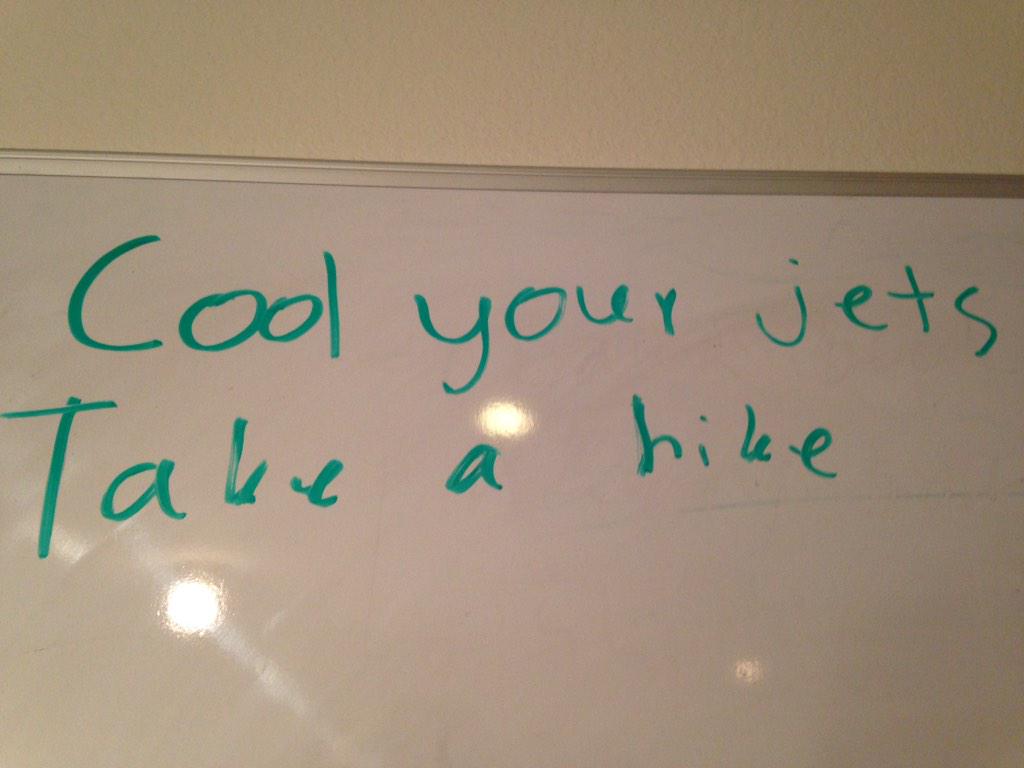 Cool your jets
Take a hike